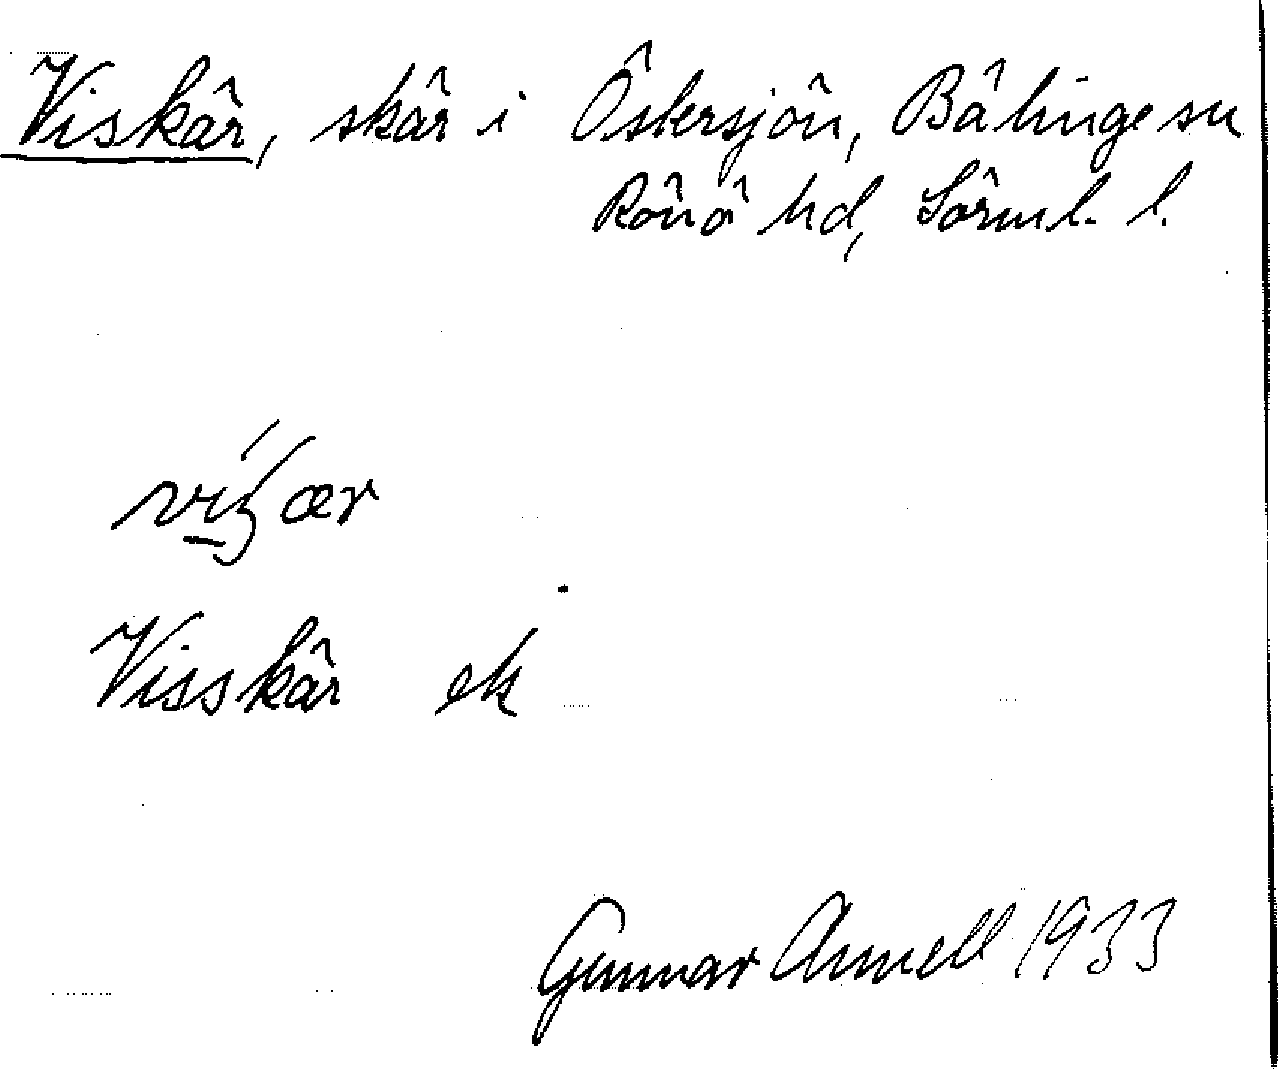 Viskär, skär i Östersjön, Bälinge sn
Rönö hd, Sörml. l.
Visskär ek
Gunnar Annell 1933